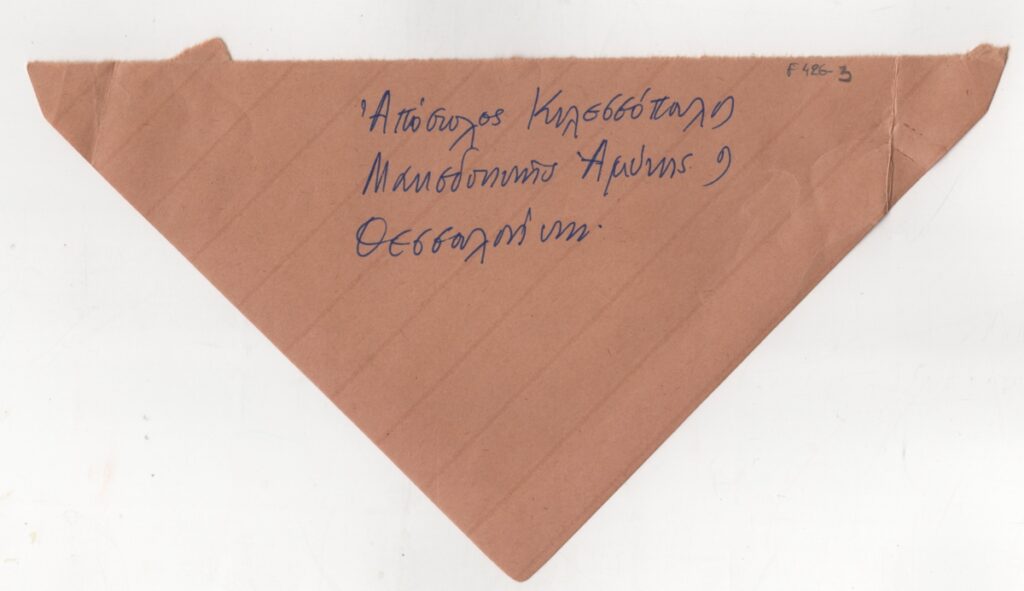 F 426-3
Ἀπόστολος Κιλεσσόπουλος
Μακεδονικῆς Ἀμύνης 9
Θεσσαλονίκη.